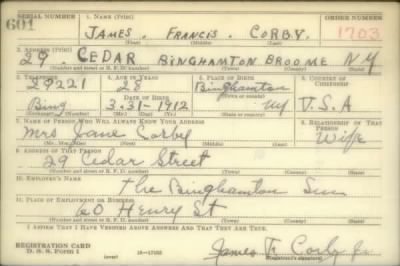 SERIAL NUMBER 1. NAME (Print) ORDER NUMBER
601 JAMES . FRANCIS . CORBY. 1703
(First) (Middle) (Last)
2. ADDRESS (Print)
29 . CEDAR BINGHAMTON BROOME N Y
(Number and street or R. F. D. number) (Town) (County) (State)
3. TELEPHONE 4. AGE IN YEARS 5. PLACE OF BIRTH 6. COUNTRY OF CITIZENSHIP
28 Binghamton
DATE OF BIRTH (Town or county)
Bing 3-31-1912 NY U.S.A
(Exchange) (Number) (Mo.) (Day) (Yr.) (State or country)
7. NAME OF PERSON WHO WILL ALWAYS KNOW YOUR ADDRESS 8. RELATIONSHIP OF THAT PERSON
Mrs Jane Corby Wife
(Mr., Mrs., Miss) (First) (Middle) (Last)
9. ADDRESS OF THAT PERSON
29 Cedar Street
(Number and street or R. F. D. number) (Town) (County) (State)
10. EMPLOYER'S NAME
The Binghamton Sun
11. PLACE OF EMPLOYMENT OR BUSINESS
60 Henry St
(Number and street or R. F. D. number) (Town) (County) (State)
I AFFIRM THAT I HAVE VERIFIED ABOVE ANSWERS AND THAT THEY ARE TRUE.
REGISTRATION CARD James F. Corby Jr
D. S. S. Form 1 (over) (Registrant's signature)